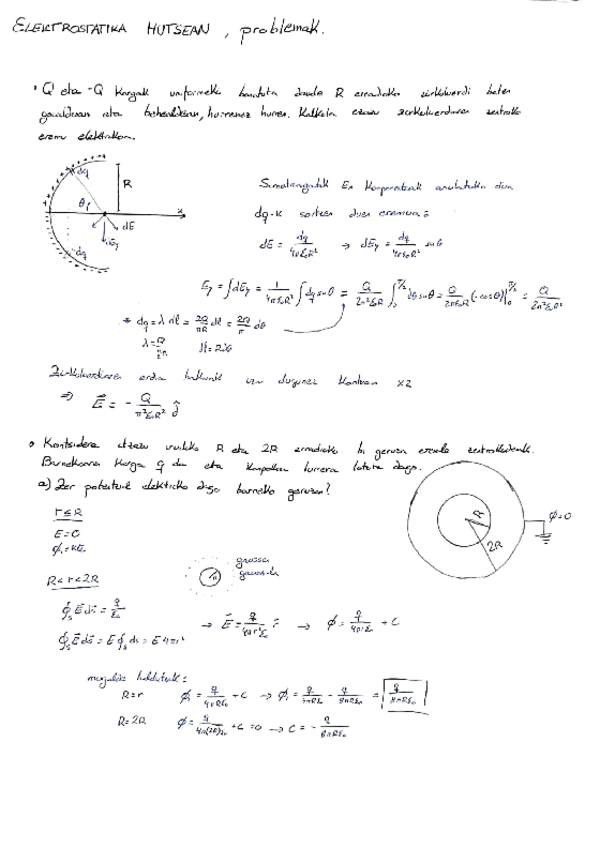 ELEKTROSTATIKA HUTSEAN, problemak.
• Q eta -Q kargak uniformeki banatuta daude R erradioko zirkulerdi baten
goialdean eta behealdean, hurrenez hurren. Kalkula ezazu zirkulerdiaren zentroko
eremu elektrikoa.
dq
R
θ
x
dE
dEy
dq
Simetriagatik Ex konponenteak anulatuko dira
dq-k sortzen duen eremua:
dE = dq/4πε₀R² → dEy = dq/4πε₀R² sinθ
Ey = ∫dEy = 1/4πε₀R² ∫dq sinθ = Q/2π²ε₀R² ∫₀^π/2 dθ sinθ = Q/2π²ε₀R² (-cosθ)|₀^π/2 = Q/2π²ε₀R²
* dq = λ dl = 2Q/πR dl = 2Q/π dθ
Zirkulerdiaren erdia bakarrik izan dugunez kontuan x2
⇒ E⃗ = - Q/π²ε₀R² ĵ
• Kontsidera itzazu R eta 2R erradioko bi geruza esferiko zentrokideak.
Barnekoaren karga q da eta kanpokoa lurrera lotuta dago.
a) Zer potentzial elektriko dago barneko geruzan?
R
2R
ϕ=0
r ≤ R
E = 0
ϕ₁ = KTE
R < r < 2R
∮s E⃗ ds⃗ = q/ε₀
∮s E⃗ ds⃗ = E ∮s ds = E 4πr²
→ E⃗ = q/4πr²ε₀ r̂ → ϕ = q/4πrε₀ + C
mugalde baldintzak:
R=r ϕ₁ = q/4πRε₀ + C → ϕ₁ = q/4πRε₀ - q/8πRε₀ = q/8πRε₀
R=2R ϕ = q/4π(2R)ε₀ + C = 0 → C = - q/8πRε₀